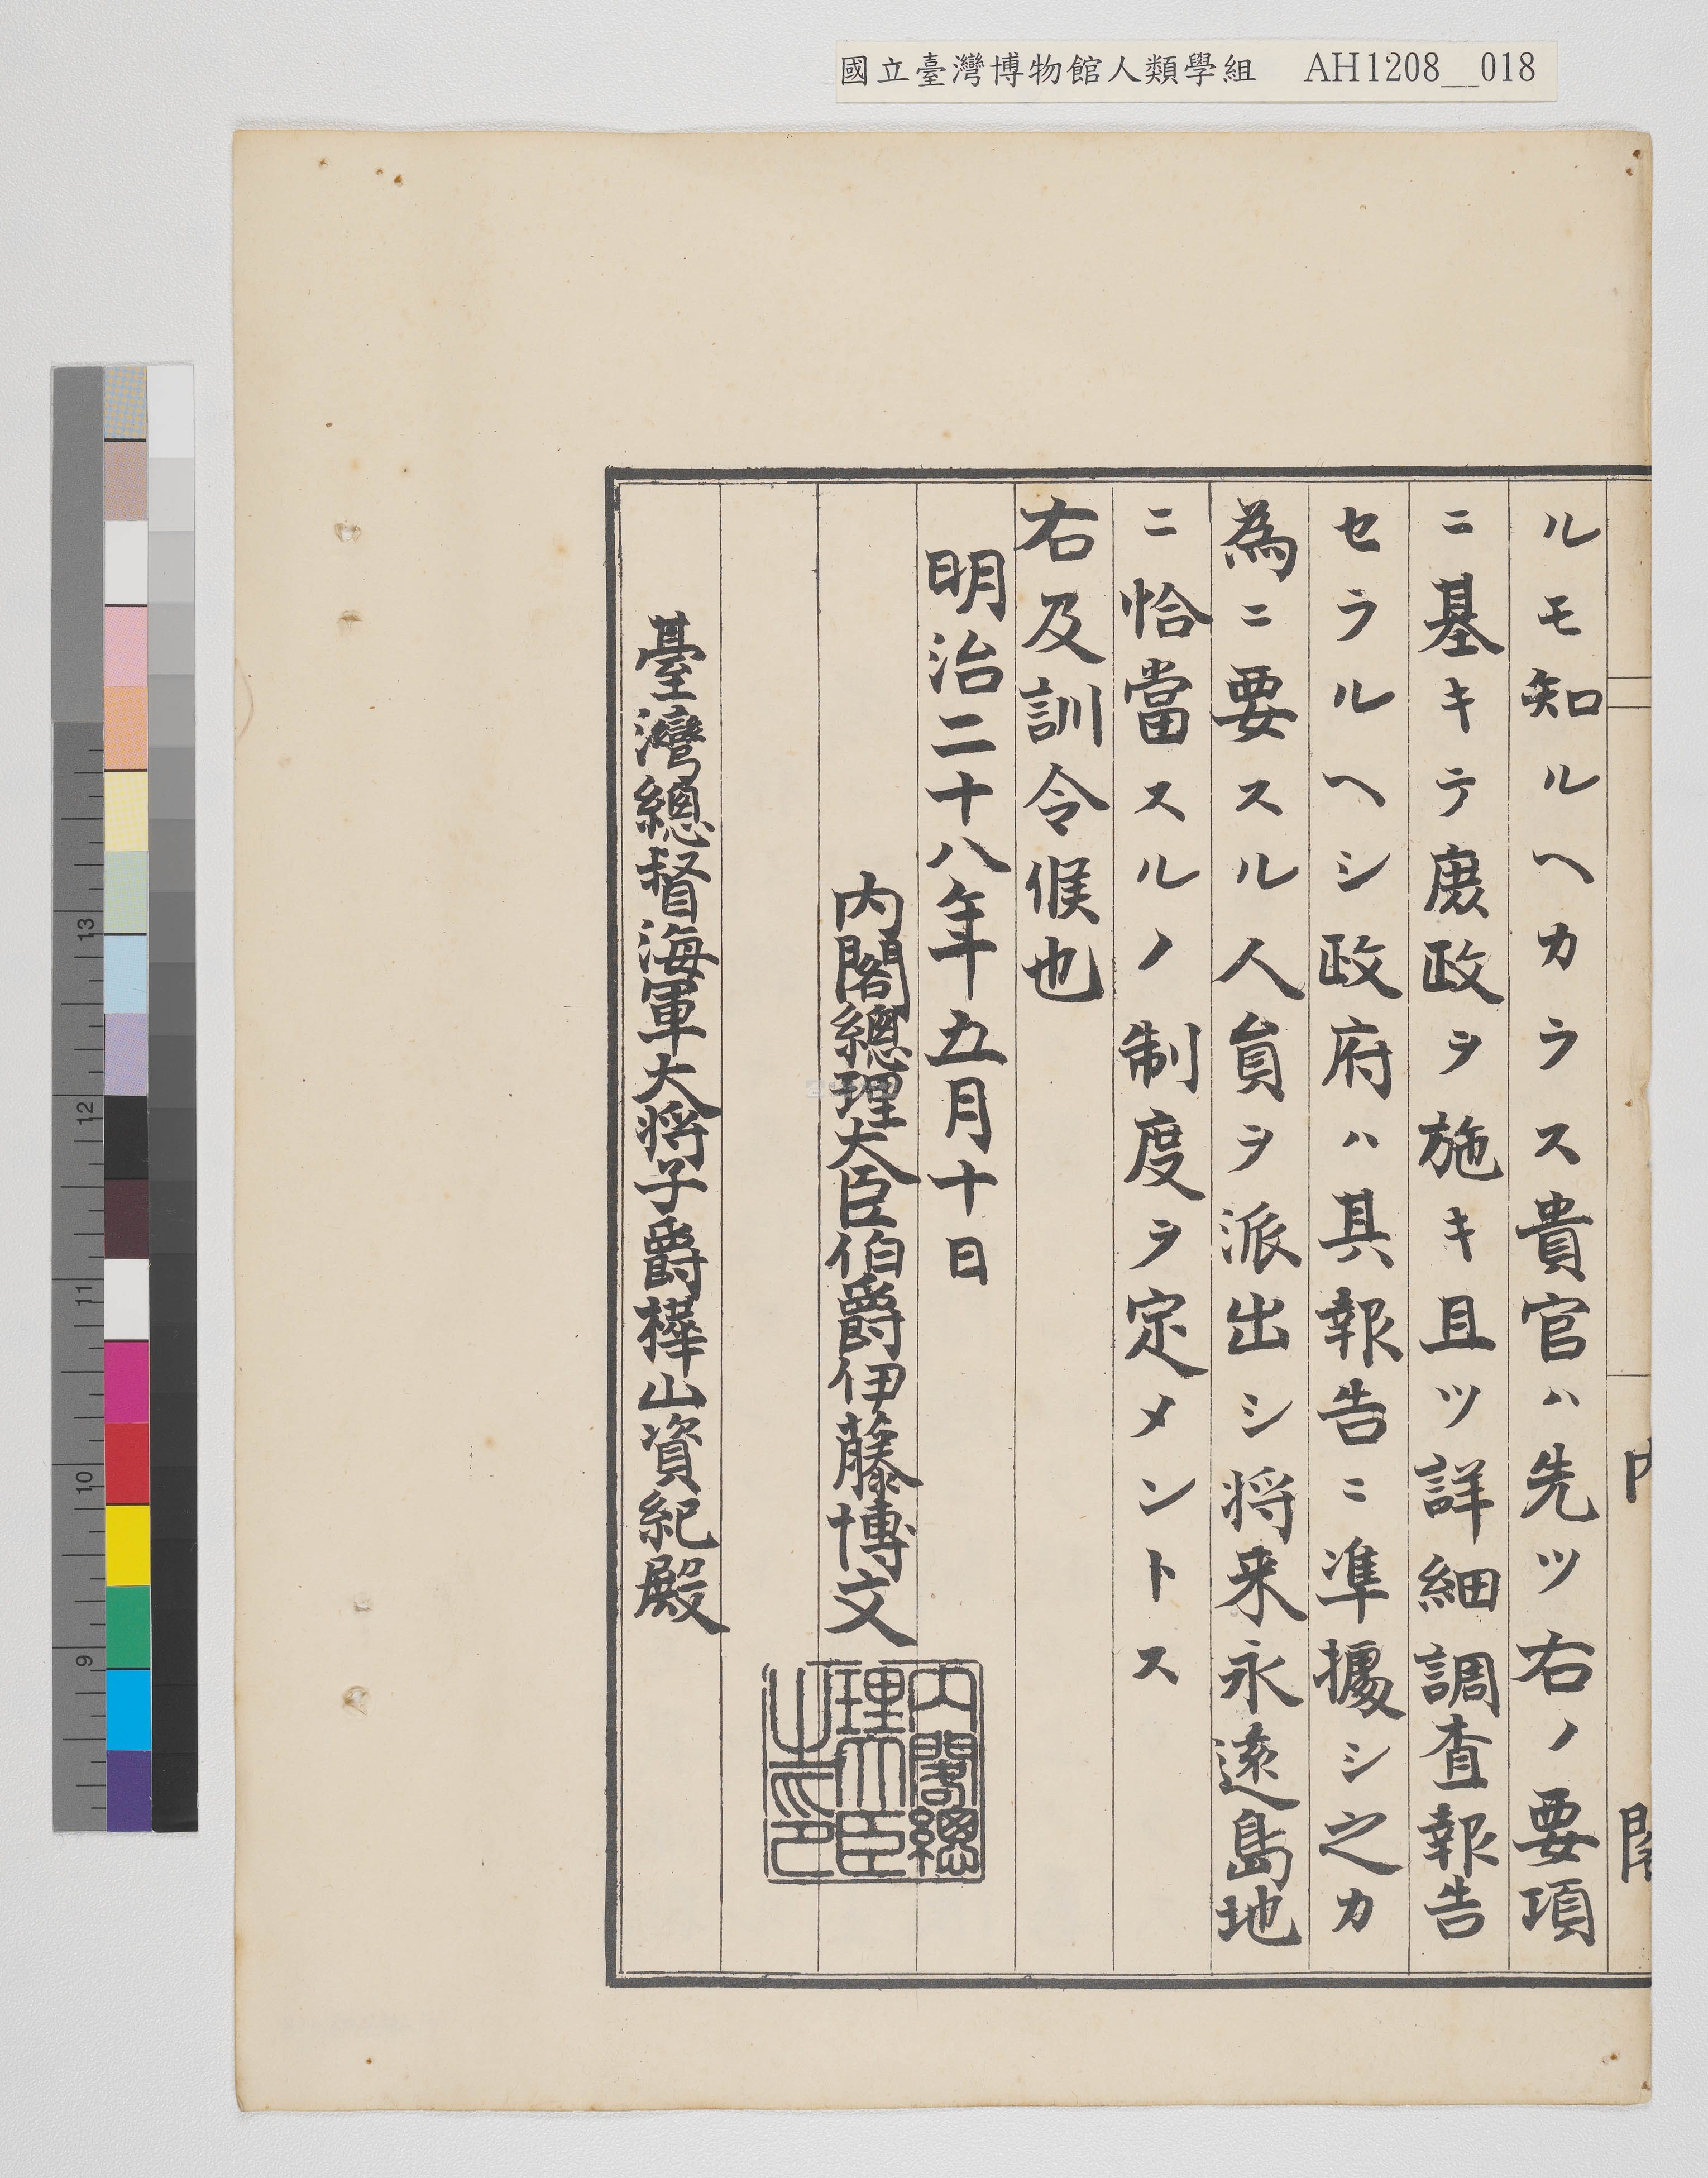 國立臺灣博物館人類學組 AH1208__018
ルモ知ルヘカラス貴官ハ先ツ右ノ要項
ニ基キテ庶政ヲ施キ且ツ詳細調査報告
セラルヘシ政府ハ其報告ニ準據シ之カ
為ニ要スル人員ヲ派出シ将来永遠島地
ニ恰當スルノ制度ヲ定メントス
右及訓令候也
明治二十八年五月十日
内閣總理大臣伯爵伊藤博文
内閣總
理大臣
之印
臺灣總督海軍大将子爵樺山資紀殿
内閣
13
12
11
10
9